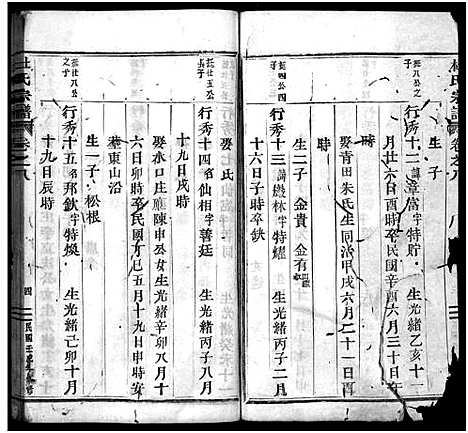 杜氏宗譜 卷之八 八
廷八公之子
生子
行秀十二 諱 富 字特貯 生光緒乙亥十一
月廿六日酉時卒民國辛酉六月三十日午
時
娶青田朱氏生同治甲戌六月二十一日酉
時
生二子 金貴 金有
廷四公之子
行秀十三 諱 林字特耀 生光緒丙子二月
十六日子時卒缺
娶 氏
十九日戌時
廷士八公之子
行秀十四 名仙相字善廷 生光緒丙子八月
娶水口莊廳陳申公女生光緒辛卯八月十
六日卯時卒民國丁巳五月十九日申時安
塟東山沿
生一子 松根
行秀十五 名邦欽字特煥 生光緒己卯十月
十九日辰時
杜氏宗譜 卷之八 四 民國壬